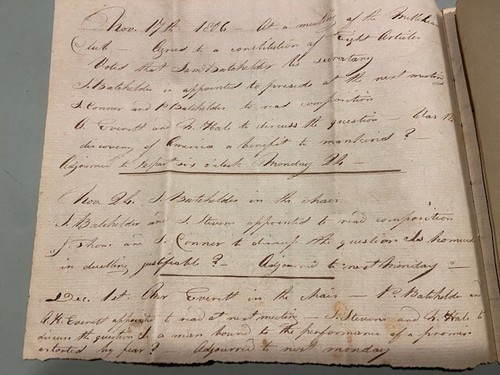 Nov. 17th 1806 — At a meeting of the
Club — Agreed to a constitution of Eight Articles
Voted that Saml Batchelder be secretary
J. Batchelder is appointed to preside at the next meeting
J. Conner and P. Batchelder to read composition
A. Everett and N. Hale to discuss the question Was the
discovery of America a benefit to mankind?
Adjourned to ½ past six o'clock Monday 24 —
Nov. 24. J. Batchelder in the chair
S. Batchelder and J. Stevens appointed to read composition
J. Thom and J. Conner to discuss the question Is homicide
in dwelling justifiable? — Adjourned to next Monday —
Dec. 1st Mr Everett in the chair — P. Batchelder and
A. H. Everett appointed to read at next meeting — J. Stevens and N. Hale to
discuss the question Is a man bound to the performance of a promise
extorted by fear? — Adjourned to next monday